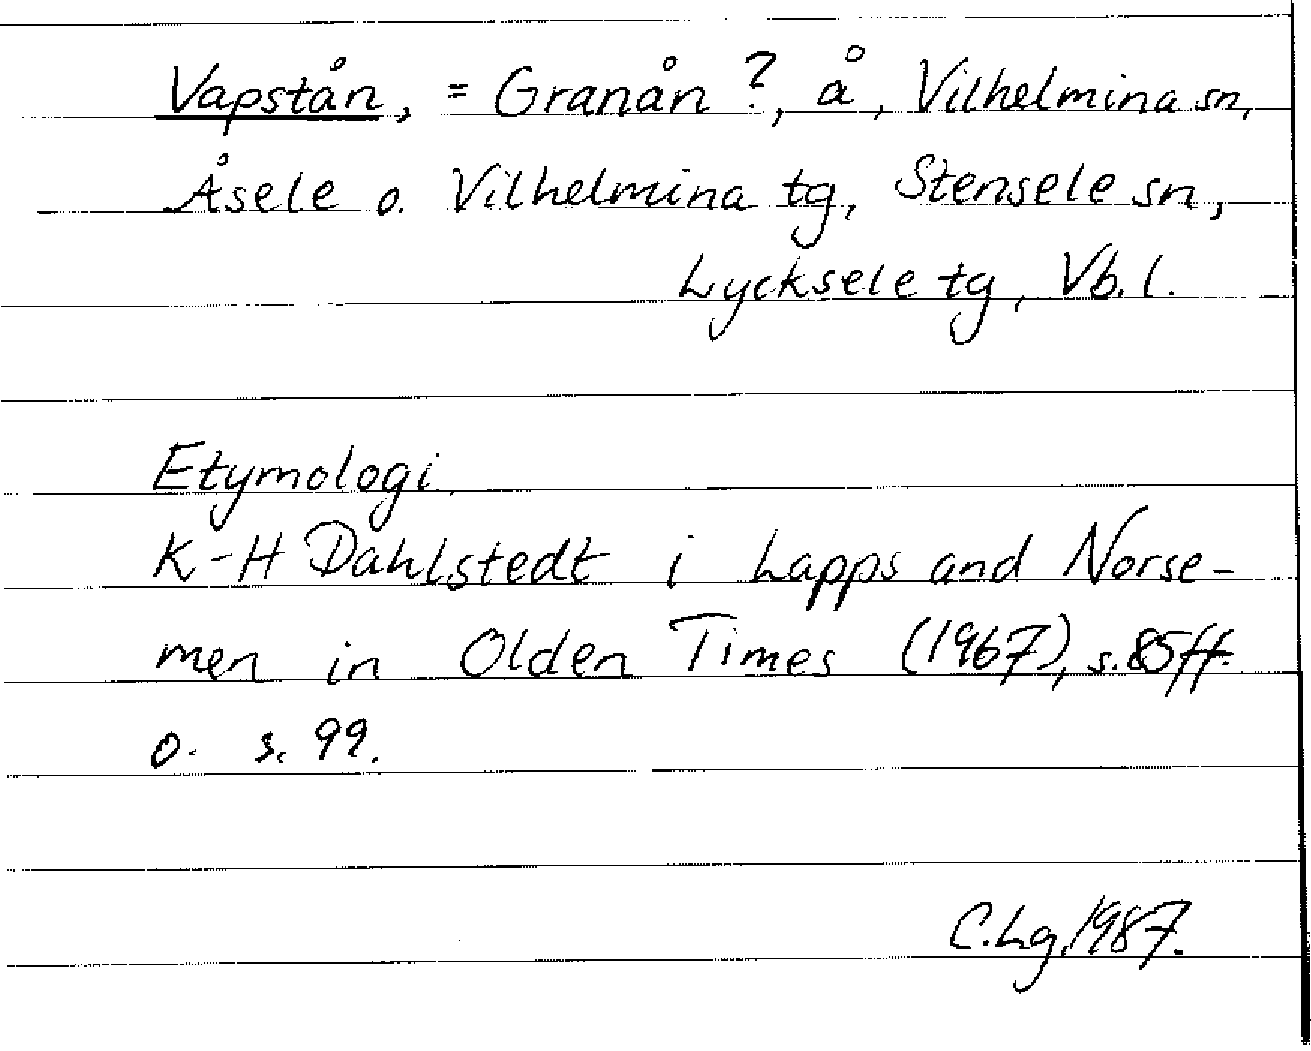 Vapstån, = Granån ?, å, Vilhelmina sn,
Åsele o. Vilhelmina tg, Stensele sn,
Lycksele tg, Vb. l.
Etymologi.
K-H Dahlstedt i Lapps and Norse-
men in Olden Times (1967), s. 85 ff.
o. s. 99.
C. Lg. 1987.